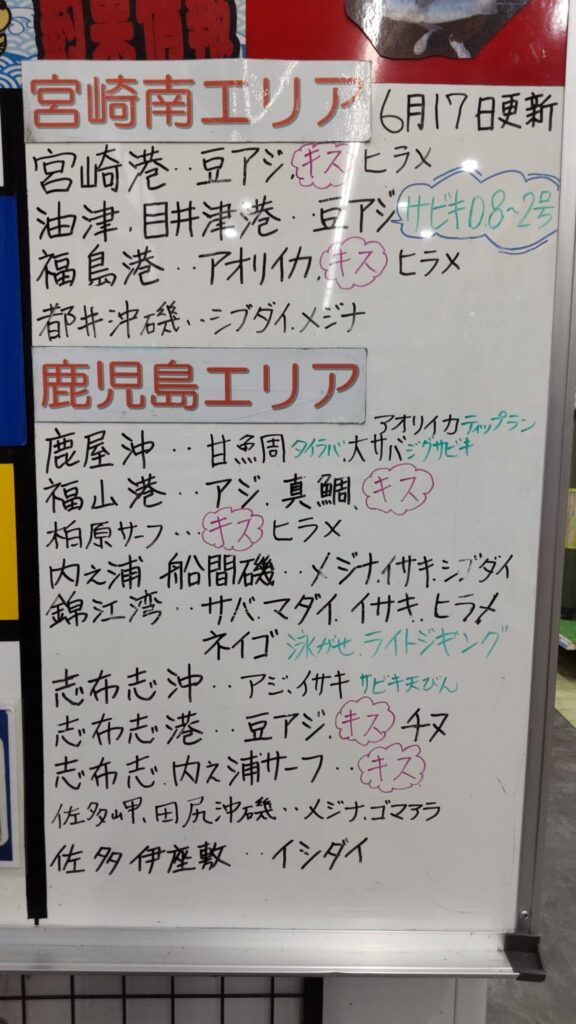 釣果情報
宮崎南エリア 6月17日更新
宮崎港‥豆アジ.キス ヒラメ
油津.目井津港‥豆アジ サビキ0.8~2号
福島港‥アオリイカ.キス ヒラメ
都井沖磯‥シブダイ.メジナ
鹿児島エリア
アオリイカティップラン
鹿屋沖‥甘魚周タイラバ.大サバジグサビキ
福山港‥アジ.真鯛.キス
柏原サーフ…キス ヒラメ
内之浦 船間磯‥メジナ.イサキ.シブダイ
錦江湾‥サバ.マダイ.イサキ.ヒラメ
ネイゴ 泳がせ.ライトジギング
志布志沖‥アジ.イサキ サビキ天びん
志布志港‥豆アジ.キス チヌ
志布志.内之浦サーフ‥キス
佐多岬.田尻沖磯‥メジナ.ゴマアラ
佐多伊座敷‥イシダイ